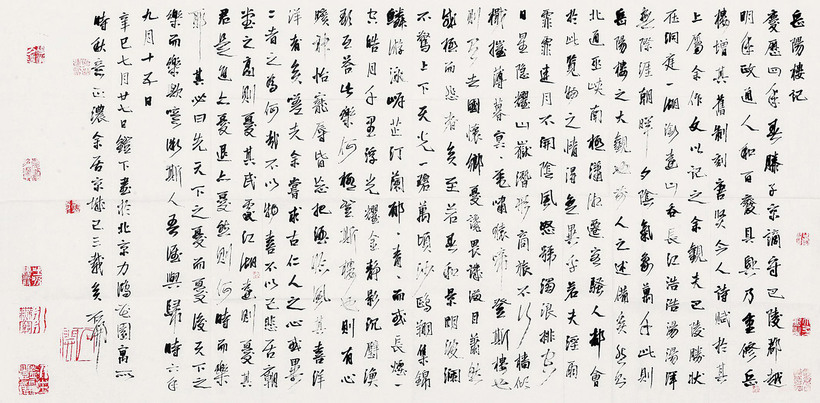 岳陽楼记
慶曆四年春滕子京謫守巴陵郡越
明年政通人和百廢具興乃重修岳
楼增其舊制刻唐賢今人詩賦於其
上屬余作文以記之余觀夫巴陵勝状
在洞庭一湖銜遠山吞長江浩浩湯湯横
無際涯朝暉夕陰氣象萬千此則
岳陽楼之大觀也前人之述備矣然則
北通巫峽南極瀟湘遷客騷人都會
於此覽物之情得無異乎若夫淫雨
霏霏連月不開陰風怒號濁浪排空
日星隱耀山嶽潛形商旅不行檣傾
楫摧薄暮冥冥虎嘯猿啼登斯楼也
則有去國懷鄉憂讒畏譏滿目蕭然
感極而悲者矣至若春和景明波瀾
不驚上下天光一碧萬頃沙鷗翔集錦
鱗游泳岸芷汀蘭郁郁青青而或長煙一
空皓月千里浮光耀金静影沉璧漁
歌互答此樂何極登斯楼也則有心
曠神怡寵辱皆忘把酒臨風其喜洋
洋者矣嗟夫余嘗求古仁人之心或異
二者之為何哉不以物喜不以己悲居廟
堂之高則憂其民處江湖遠則憂其
君是進亦憂退亦憂然則何時而樂
耶其必曰先天下之憂而憂後天下之
樂而樂歟噫微斯人吾誰與歸時六年
九月十五日
辛巳七月廿七日鐙下書於北京力鴻花園寓所
時秋意正濃余居京城已三載矣